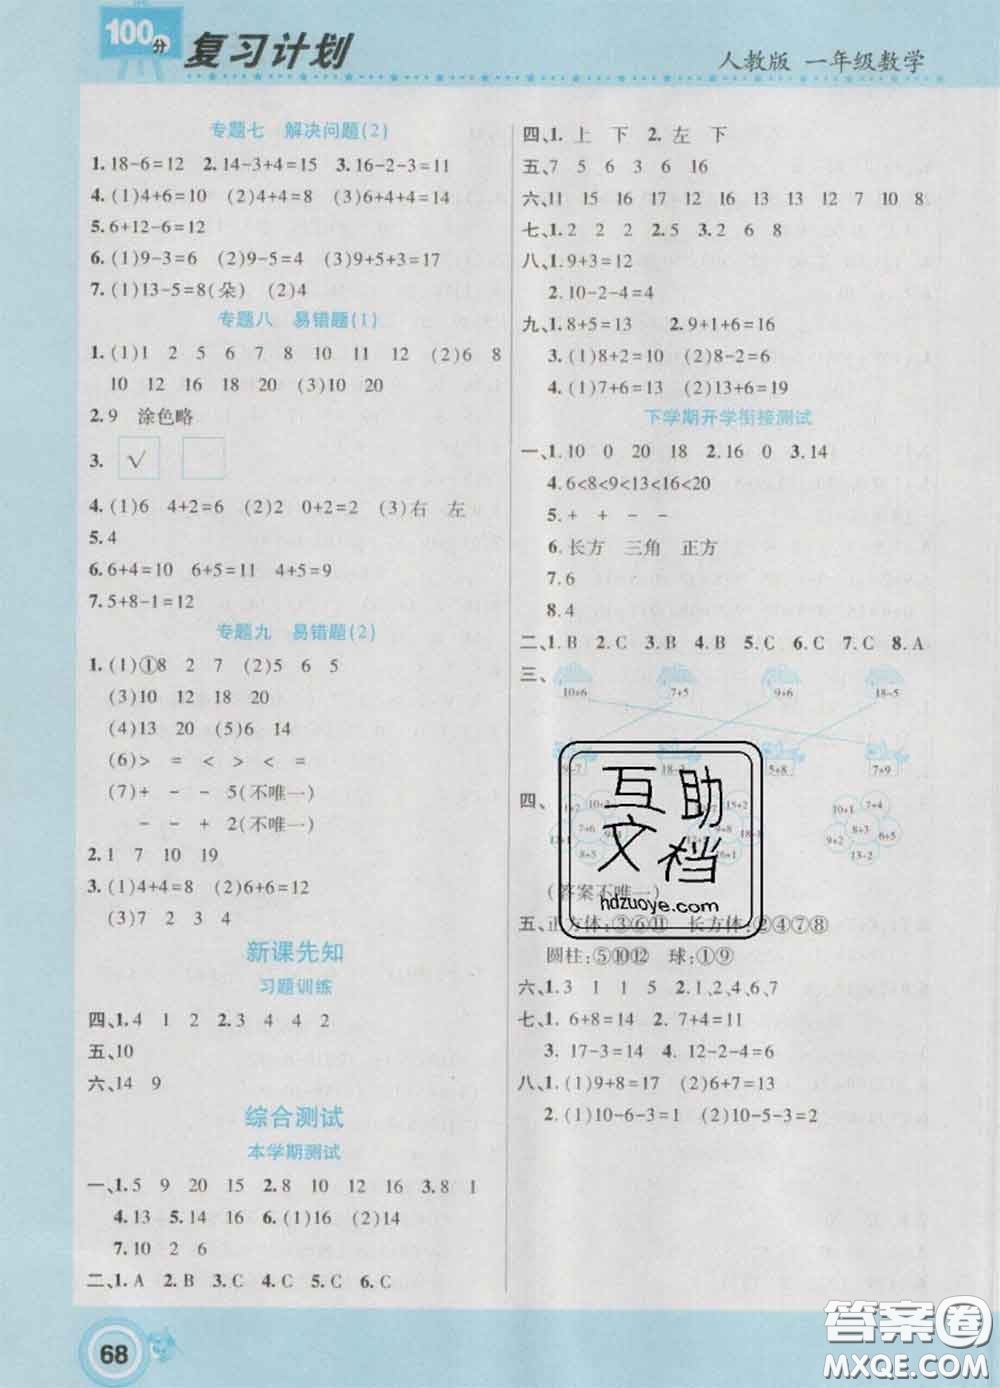 100分
复习计划
人教版 一年级数学
专题七 解决问题(2)
1. 18-6=12 2. 14-3+4=15 3. 16-2-3=11
4. (1)4+6=10 (2)4+4=8 (3)6+4+4=14
5. 6+12-6=12
6. (1)9-3=6 (2)9-5=4 (3)9+5+3=17
7. (1)13-5=8(朵) (2)4
专题八 易错题(1)
1. (1)1 2 5 6 7 8 10 11 12 (2)6 8
10 12 16 18 20 (3)10 20
2. 9 涂色略
3. √
4. (1)6 4+2=6 (2)2 0+2=2 (3)右 左
5. 4
6. 6+4=10 6+5=11 4+5=9
7. 5+8-1=12
专题九 易错题(2)
1. (1)①8 2 7 (2)5 6 5
(3)10 12 18 20
(4)13 20 (5)6 14
(6)> = < > < =
(7)+ - - 5(不唯一)
- - + 2(不唯一)
2. 1 7 10 19
3. (1)4+4=8 (2)6+6=12
(3)7 2 3 4
新课先知
习题训练
四、1. 4 1 2 2. 3 4 4 2
五、10
六、14 9
综合测试
本学期测试
一、1. 5 9 20 15 2. 8 10 12 16 3. 8 1
4. 13 5. 14 16 6. (1)16 (2)14
7. 10 2 6
二、1. A 2. B 3. C 4. C 5. C 6. C
68
四、1. 上 下 2. 左 下
五、7 5 6 3 6 16
六、11 15 16 17 12 16 13 12 7 10 8
七、1. 2 2 2 2. 5 3. 2 6 8
八、1. 9+3=12
2. 10-2-4=4
九、1. 8+5=13 2. 9+1+6=16
3. (1)8+2=10 (2)8-2=6
4. (1)7+6=13 (2)13+6=19
下学期开学衔接测试
一、1. 10 0 20 18 2. 16 0 3. 14
4. 6<8<9<13<16<20
5. + + - -
6. 长方 三角 正方
7. 6
8. 4
二、1. B 2. C 3. B 4. B 5. C 6. C 7. C 8. A
三、
10+6 7+5 9+6 18-5
9-7 18-3 5+8 7+9
四、
10+2 15+2 10+1 7+4
7+6 9+8 18-1 9+2 8+3 6+5
8+5 16+1 13-2
(答案不唯一)
五、正方体:③⑥⑪ 长方体:②④⑦⑧
圆柱:⑤⑩⑫ 球:①⑨
六、1. 3 1 1 5 2. 1、2、4、6、7
七、1. 6+8=14 2. 7+4=11
3. 17-3=14 4. 12-2-4=6
八、1. (1)9+8=17 (2)6+7=13
2. (1)10-6-3=1 (2)10-5-3=2
互助
文档
hdzuoye.com
答案圈
MXQE.COM